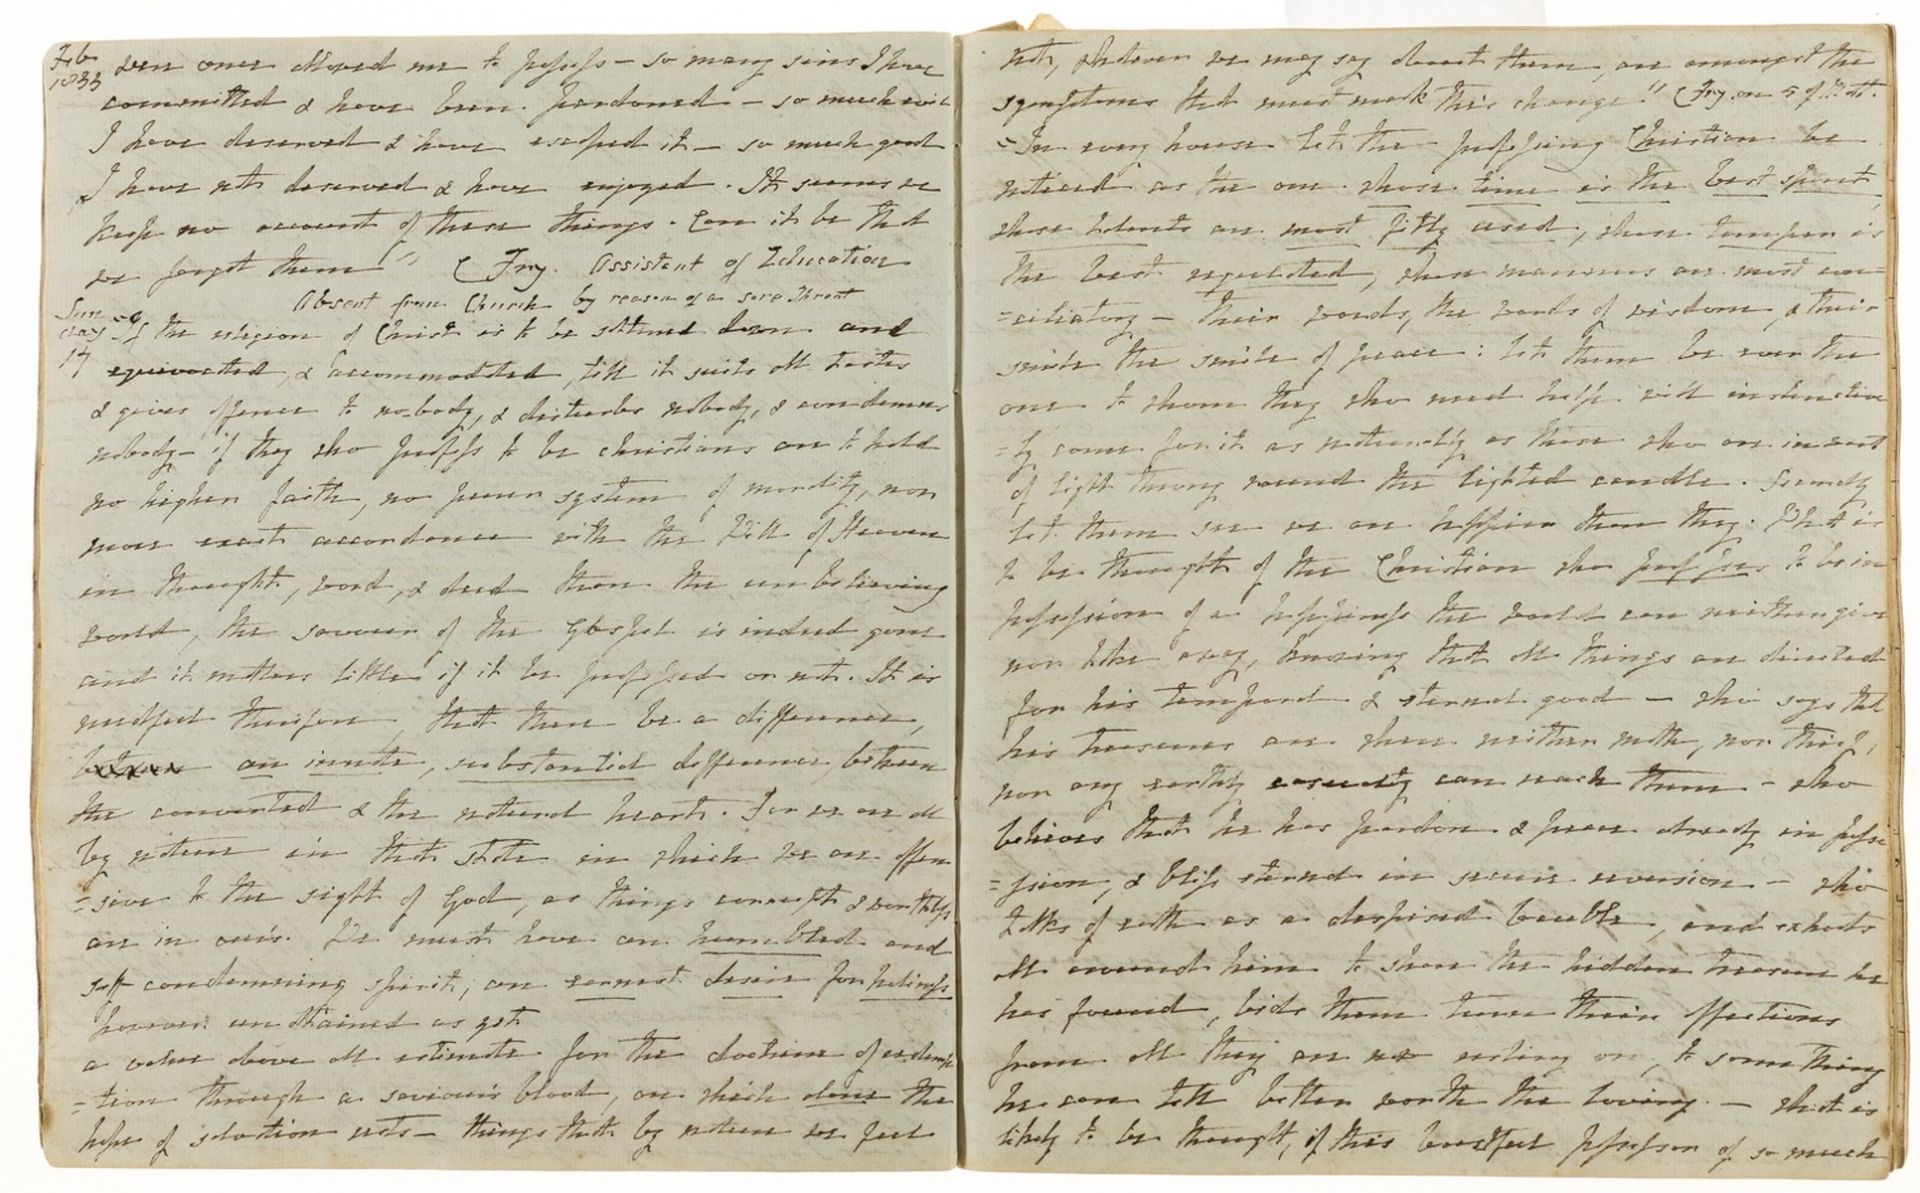 Feb
1833
ever once allowed me to possess – so many sins I have
committed & have been pardoned – so much evil
I have deserved & have escaped it – so much good
I have not deserved & have enjoyed. It seems we
keep no account of these things. Can it be that
we forget them" (Fry. Assistant of Education
Absent from Church by reason of a sore throat
Sun
day
17
"If the religion of Christ is to be down and
& accommodated, till it suits all tastes
& gives offence to nobody, & disturbs nobody, & condemns
nobody – if they who profess to be christians are to hold
no higher faith, no purer system of morality, nor
more exact accordance with the Will of Heaven
in thought, word, & deed than the unbelieving
world, the savour of the Gospel is indeed gone
and it matters little if it be professed or not. It is
needful therefore, that there be a difference,
between an innate, substantial difference, between
the converted & the natural heart. For we are all
by nature in that state in which we are offen
=sive to the sight of God, as things corrupt & worthless
are in ours. We must have an humbled and
self condemning spirit, an earnest desire for holiness
however unattained as yet
a value above all estimate for the doctrine of redemp
=tion through a saviour's blood, on which alone the
hope of salvation rests – things that by nature we feel
not, whatever we may say about them, are amongst the
symptoms that must mark this change!" (Fry. on 5 of Matt.
"In every house let the professing Christian be
noticed as the one whose time is the best spent,
whose talents are most fitly used, whose temper is
the best regulated, whose manners are most con=
=ciliatory – their words, the words of wisdom, & their
smile the smile of peace: let them be ever the
one to whom they who need help will instinctive
=ly come for it as naturally as those who are in want
of light throng round the lighted candle. Secondly
let them see we are happier than they. What is
to be thought of the Christian who professes to be in
possession of a happiness the world can neither give
nor take away, knowing that all things are directed
for his temporal & eternal good – who says that
his treasures are where neither moth, nor thief,
nor any earthly casualty can reach them – who
believes that he has pardon & peace already in posse
=ssion, & bliss eternal in secure reversion – who
talks of earth as a despised bauble, and exhorts
all around him to share the hidden treasure he
has found, bids them turn their affections
from all they are resting on, to something
he can tell better worth the loving. – what is
likely to be thought, if this boastful possessor of so much